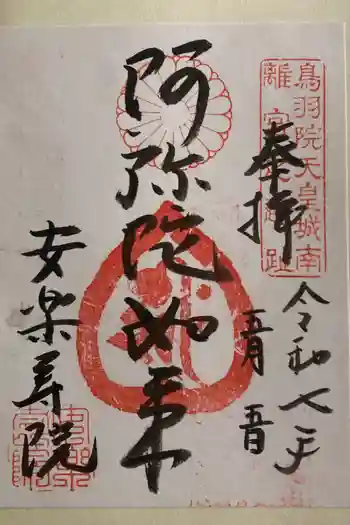 鳥羽院天皇城南
離宮
址
奉拝
令和七年
五月
五日
阿弥陀如来
安楽寿院